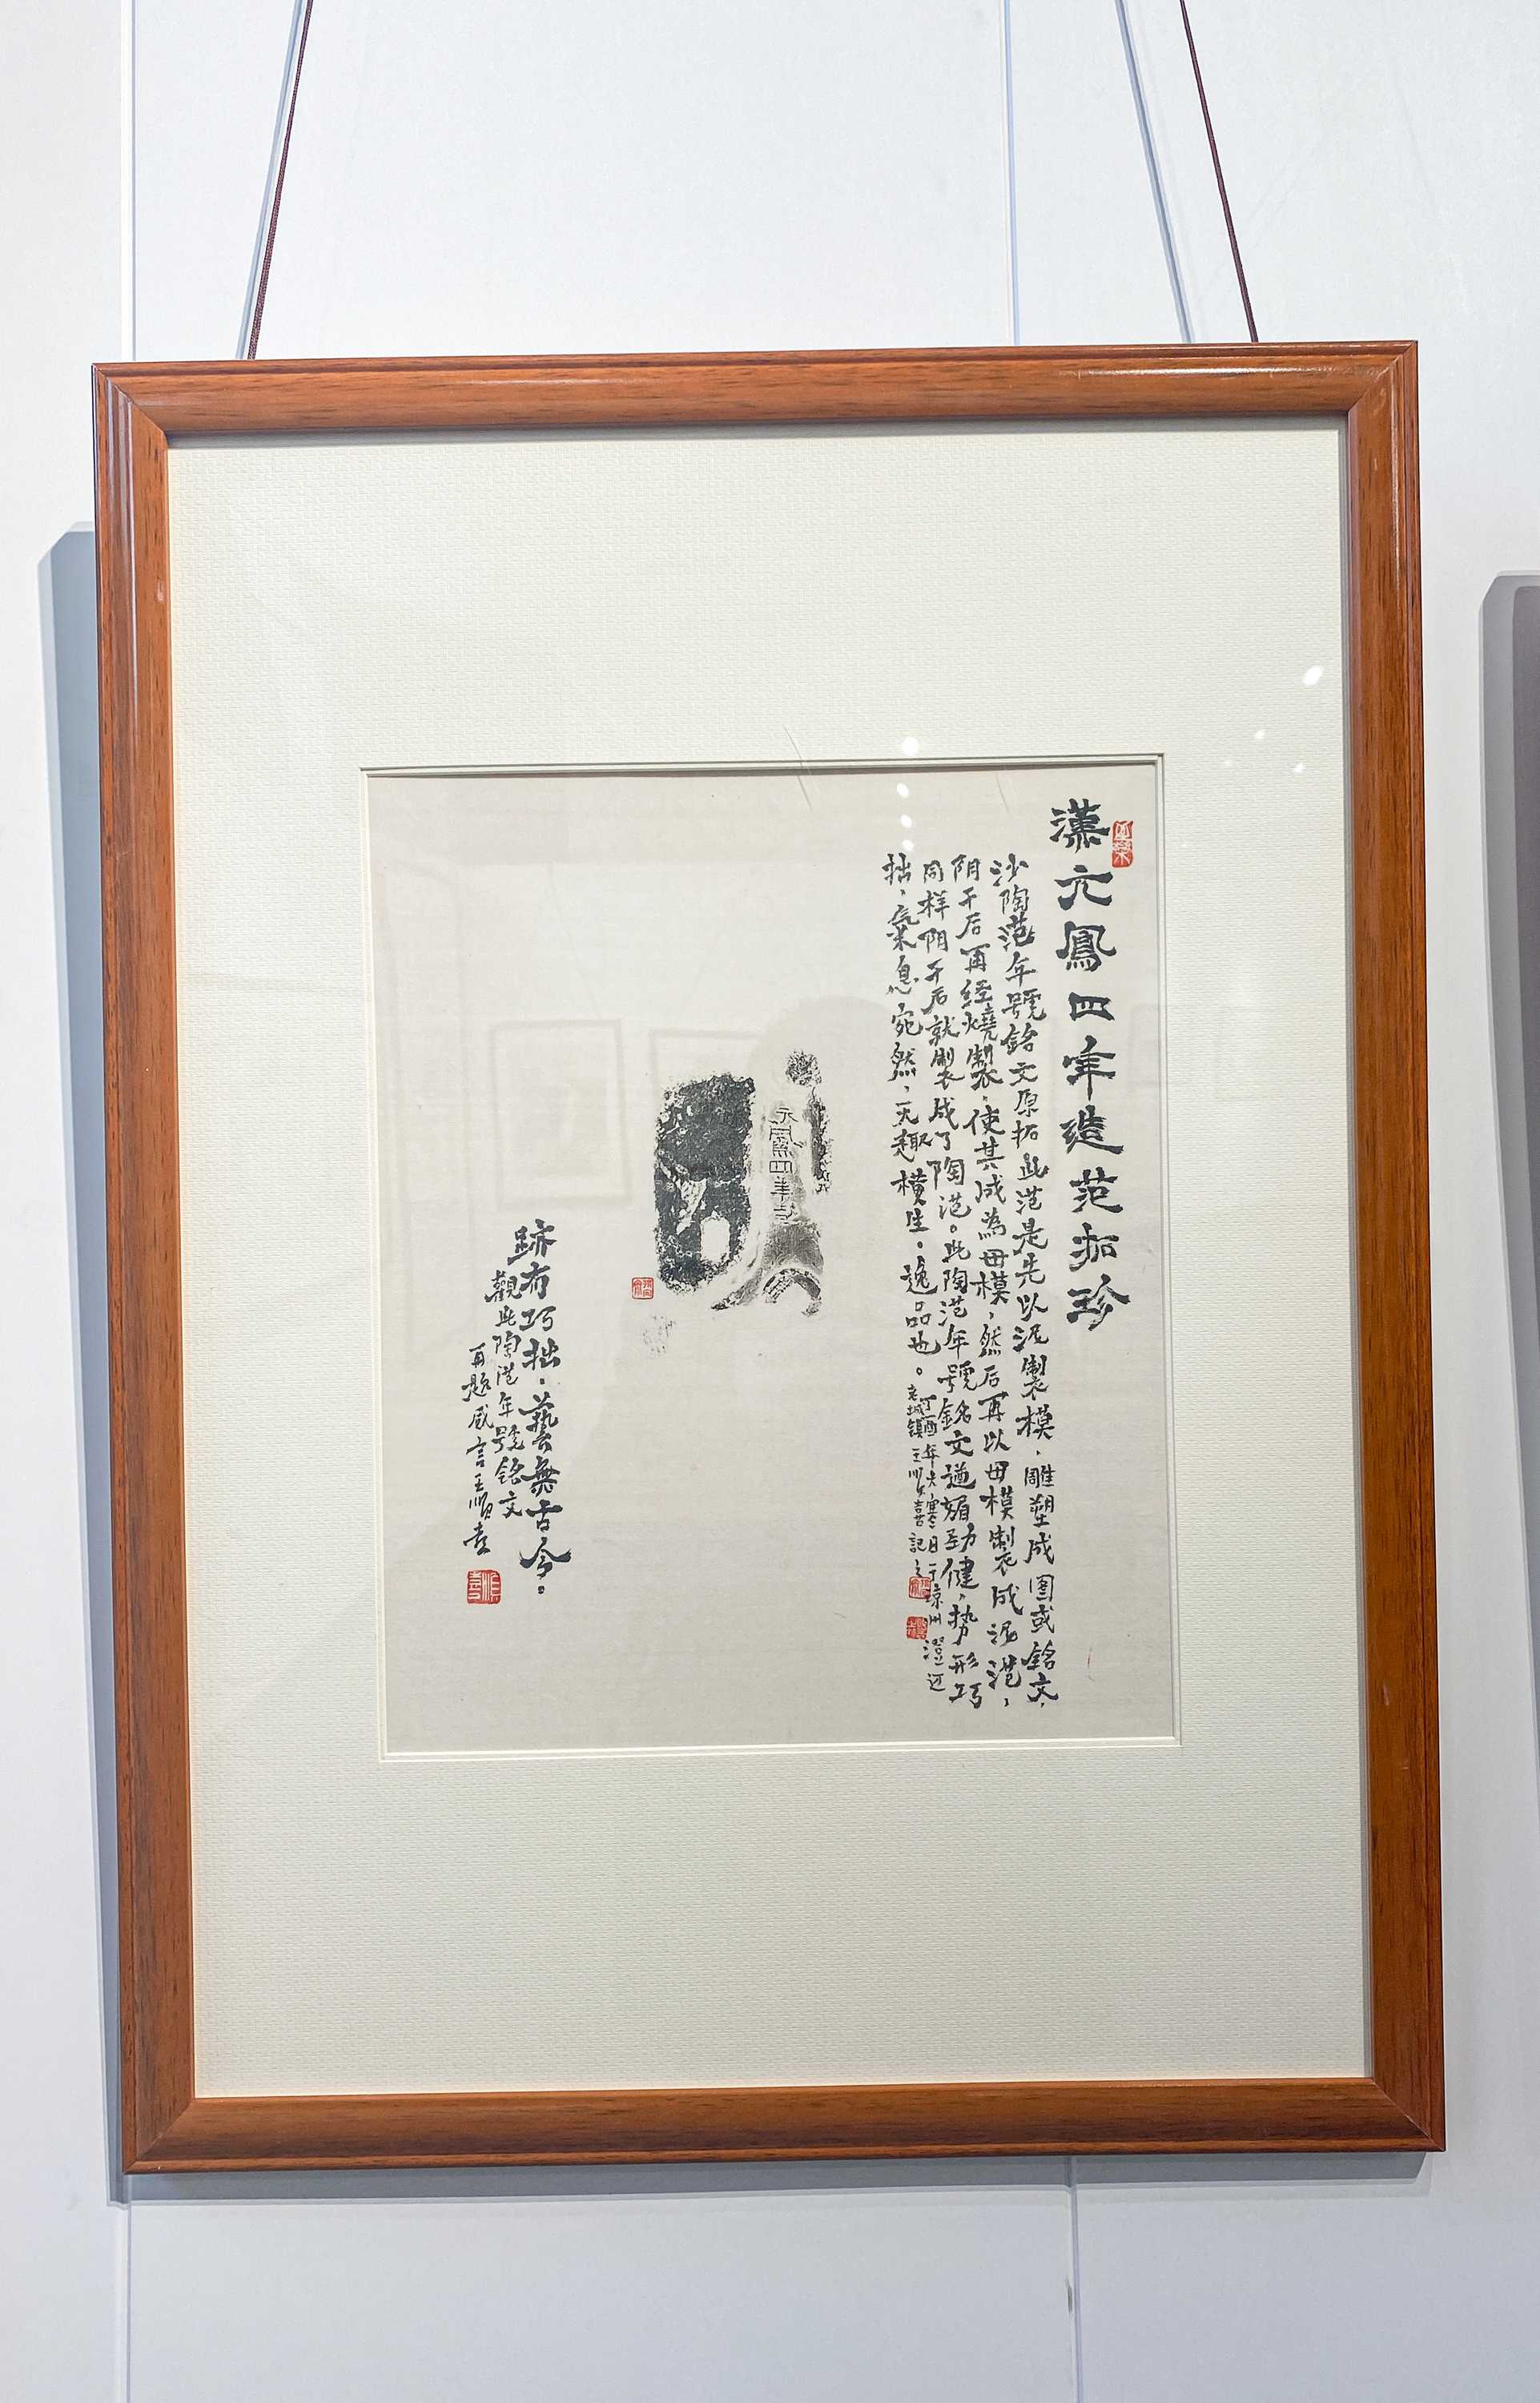 漢元鳳四年造范拓珍
沙陶范年號銘文原拓此范是先以泥製模，雕塑成图或銘文，
阴干后再经燒製，使其成為母模，然后再以母模製成泥范，
同样阴干后就製成了陶范。此陶范年號銘文遒媚劲健，势形巧
拙，氣息宛然，天趣横生。逸品也。
丁酉年大寒日于琼州澄迈
老城镇王順喜記之
元鳳四年造
跡有巧拙，藝無古今。
觀此陶范年號銘文
再題感言王順喜